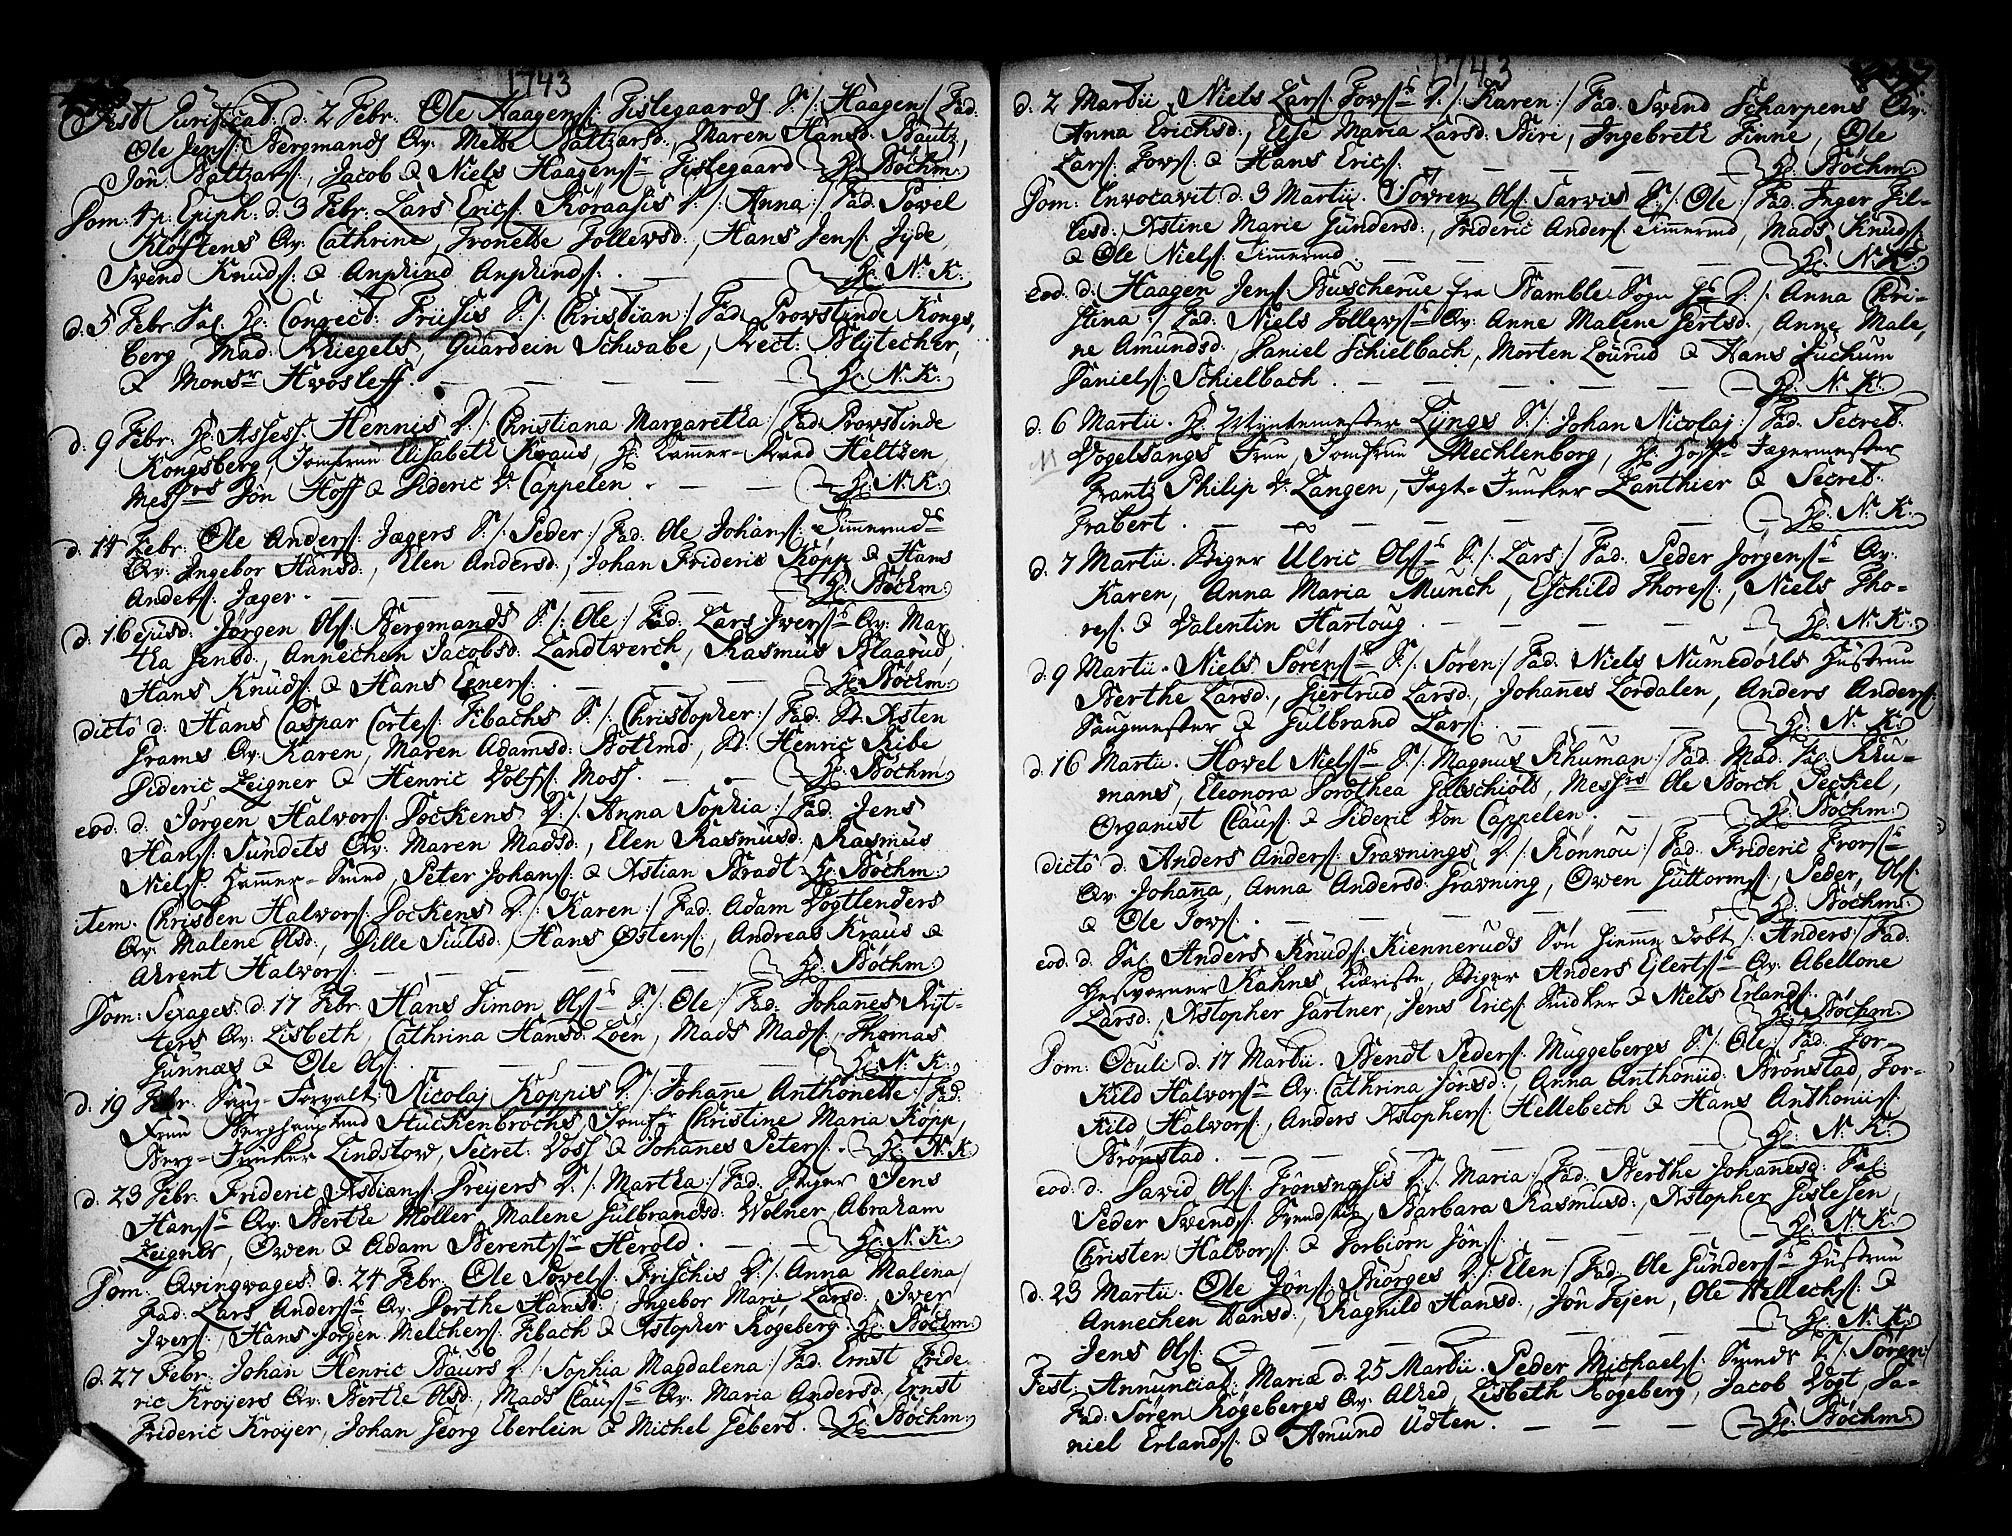 1743
Fest Purificat: d. 2 Febr. Ole Haagens: Gislegaards S./: Haagen/ Fad.
Ole Jens: Bergmands Qv. Mette Baltzarsd:, Maren Hansd: Bautz,
Jon Baltzars:, Jacob & Niels Haagens: Gislegaard. Hr: Bøchm:
Dom: 4 p. Epiph: d. 3 Febr: Lars Erics: Koraasis D./: Anna:/ Fad: Povel
Kløftens Qv. Cathrine, Tronette Tollevsd:, Hans Jens: Jyde,
Svend Knuds: & Anphind Anphinds: Hr: N. K:
d. 5 Febr. Sal. Hr: Conrect: Friisis S./: Christian:/ Fad: Provstinde Kongs,
berg, Mad: Kriegels, Guardein Schwabe, Rect: Blytecher,
& Monsr Hvosleff. Hr: N. K:
d. 9 Febr. Hr: Assess: Hennis D./: Christiana Margaretha:/ Fad: Provstinde
Kongsberg, Jomfruu Elisabeth Kraus, Hr: Kammer-Raad Heltzen,
Messrs Jøn Hoff & Dideric V. Cappelen. Hr: N. K:
d. 14 Febr: Ole Anders: Jægers S./: Peder:/ Fad: Ole Johans: Timmermds
Qv: Ingebor Hansd:, Elen Andersd:, Johan Frideric Kopp & Hans
Anders: Jæger. Hr: Bøchm:
d. 16 ejusd: Jørgen Ols: Bergmands S./: Ole:/ Fad: Lars Ivers: Qv: Mar,
tha Jensd:, Annechen Jacobsd: Landtwerch, Rasmus Blaarud,
Hans Knuds: & Hans Egners: Hr: Bøchm:
dicto d: Hans Caspar Cortes: Fibachs S./: Christopher:/ Fad: St. Asten
Prams Qv: Karen, Maren Adamsd: Botkmd, St. Henric Ribe
Dideric Zeigner & Henric Volfs: Moss. Hr: Bøchm:
eod. d. Jørgen Halvors: Dockens D./: Anna Sophia:/ Fad: Jens
Hans: Sundets Qv. Maren Madsd:, Elen Rasmusd:, Rasmus
Niels: Hammer-Smed, Peter Johans: & Xstian Bradt. Hr: Bøchm:
item. Christen Halvors: Dockens D./: Karen:/ Fad: Adam Vogtlenders
Qv. Malene Olsd:, Dille Siulsd:, Hans Østens:, Andreas Kraus &
Ahrent Halvors: Hr: Bøchm:
Dom: Sexages: d. 17 Febr. Hans Simon Ols: S./: Ole:/ Fad: Johannes Ryt-
ters Qv: Lisbeth, Cathrina Hansd: Loen, Mads Mads:, Thomas
Gunnæs & Ole Ols: Hr: N. K:
d. 19 Febr. Saug-Forvalt: Nicolaj Koppis D./: Johanne Anthonette:/ Fad:
Fruu Berghauptmd Stuckenbrochs, Jomfr. Christine Maria Kopp,
Berg-Juncker Lindstow, Secret: Voss & Johannes Peters: Hr: N. K:
d. 23 Febr: Frideric Xstians: Preyers D./: Martha:/ Fad: Stiger Jens
Hans: Qv. Berthe Møller, Malene Gulbrandsd: Wolner, Abraham
Zeigner, Owen & Adam Berents: Herold. Hr: N. K:
Dom: Qvinqvages: d. 24 Febr: Ole Povels: Frischis D./: Anna Malena/
Fad: Lars Anders: Qv: Dorthe Hansd:, Ingebor Marie Larsd:, Iver
Ivers:, Hans Jørgen Melchers: Fibach & Xstopher Kogeberg. Hr: Bøchm:
d. 27 Febr. Johan Henric Baurs D./: Sophia Magdalena:/ Fad: Ernst Fride,
ric Kroyers Qv. Berthe Olsd:, Mads Claus: Qv. Maria Andersd:, Ernst
Frideric Kroyer, Johan Georg Eberlein & Michel Gebert. Hr: Bøchm:
1743
d. 2 Martii. Niels Lars: Fors: D./: Karen:/ Fad: Svend Scharpens Qv.
Anna Erichsd:, Else Maria Larsd: Biri, Ingebreth Finne, Ole
Lars: Fors: & Hans Erics: Hr: Bøchm:
Dom: Invocavit d. 3 Martii. Søvren Ols: Sarvis S./: Ole:/ Fad: Inger Jil-
lesd: Xstine Marie Gundersd:, Frideric Anders: Timmermd, Mads Knuds:
& Ole Niels: Timmermd. Hr: N. K:
eod. d. Haagen Jens: Buscherue fra Bamble Sogn D./: Anna Chri-
stina:/ Fad: Niels Tollevs: Qv. Anne Malene Gertsd:, Anne Male,
ne Amundsd:, Daniel Schielbach, Morten Lourud & Hans Juchum
Daniels: Schielbach. Hr: N. K:
d. 6 Martii. Hr: Myntemester Lyngs S./: Johan Nicolaj:/ Fad: Secret:
Vogelsangs Fruu, Jomfruu Mechlenborg, Hr: Hoff-Jægermester
Frantz Philip V. Langen, Jagt-Junker Zanthier & Secret:
Prabert. Hr: N. K:
d. 7 Martii. Stiger Ulric Ols: S./: Lars:/ Fad: Peder Jorgens: Qv.
Karen, Anna Maria Munch, Eschild Thores:, Niels Tho-
res: & Valentin Hartoug. Hr: N. K:
d. 9 Martii. Niels Sørens: S./: Søren:/ Fad: Niels Numedolls Hustruu
Berthe Larsd:, Giertrud Larsd:, Johannes Lordalen, Anders Anders:
Saugmester & Gulbrand Lars: Hr: N. K:
d. 16 Martii. Hovel Niels: S./: Magnus Thuman:/ Fad: Mad: Sal: Thu-
mans, Eleonora Dorothea Gulschiold, Messrs Ole Borch Peckel,
Organist Claus: & Dideric Von Cappelen. Hr: Bøchm:
dicto d: Anders Anders: Gravnings D./: Rønnou:/ Fad: Frideric Frors:
Qv: Johanna, Anna Andersd: Gravning, Owen Guttorms:, Peder Ols:
& Ole Fors: Hr: Bøchm:
eod. d. Sal. Anders Knuds: Kienneruds Søn hiemme Døbt /: Anders:/ Fad:
Kahnes, Stiger Anders Ejlerts: Qv. Abellone
Larsd:, Xstopher Gartner, Jens Erics: & Niels Erlands: Hr: Bøchm:
Dom: Oculi d. 17 Martii. Bendt Peders: Muggebergs S./: Ole:/ Fad: Tor-
kild Halvors: Qv. Cathrina Jonsd:, Anna Anthoniid: Brønstad, Tor-
kild Halvors:, Anders Xstophers: Hellebech & Hans Anthoniis:
Brønstad. Hr: N. K:
eod. d. David Ols: Trønsnæsis D./: Maria:/ Fad: Berthe Johannesd: Sal:
Peder Svends:, Barbara Rasmusd:, Xstopher Gislesen,
Christen Halvors: & Torbiorn Jons: Hr: N. K:
d. 23 Martii. Ole Jons: Borges D./: Elen:/ Fad: Ole Gunders: Hustruu
Annechen Hansd:, Ragnild Hansd:, Jon Tejen, Ole Hellechs: &
Jens Ols: Hr: N. K:
Fest: Annunciat: Mariæ d. 25 Martii. Peder Michaels: Smeds S./: Søren:/
Fad: Søren Kogebergs Qv. Alhed, Lisbeth Kogeberg, Jacob Vogt, Da-
niel Erlands: & Amund Udten. Hr: Bøchm: